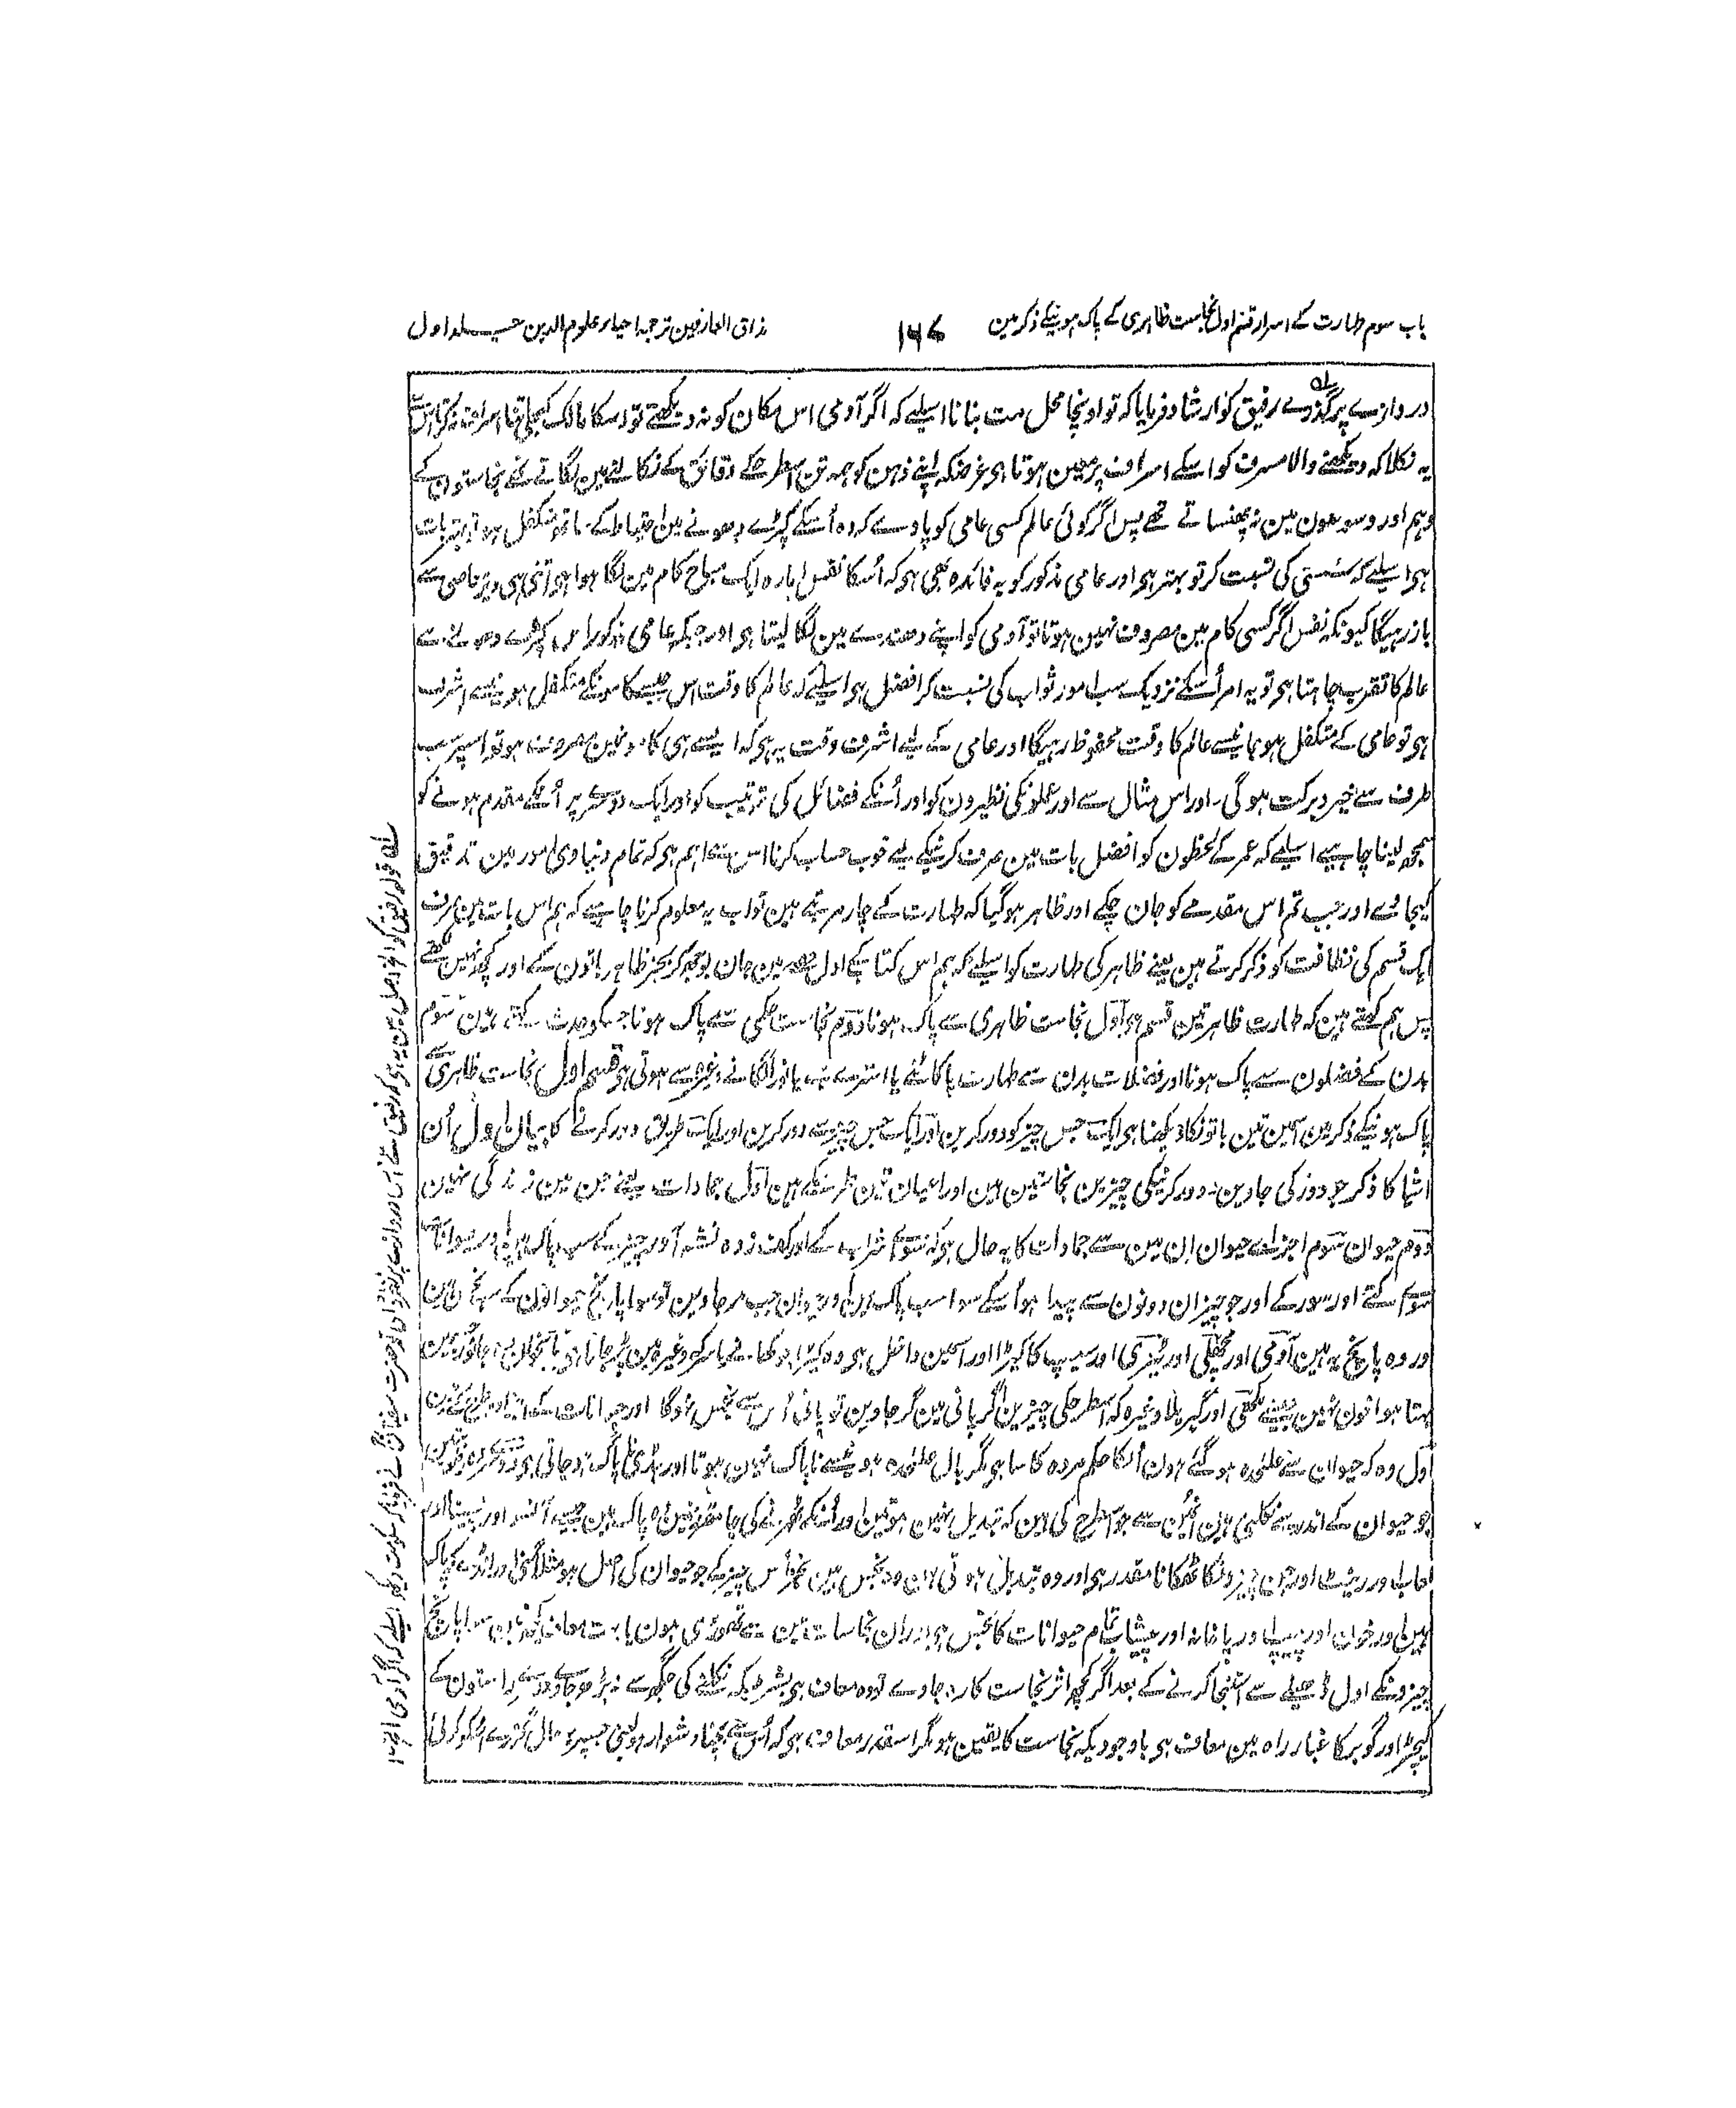 باب سوم طہارت کے اسرار قسم اول نجاست ظاہری کے پاک ہونیکے ذکر مین
۱۶۷
مذاق العارفین ترجمہ احیاء علوم الدین جلد اول
دروازے پر گذرے رفیق کو ارشاد فرمایا کہ تو اونچا محل مت بنانا اسلیے کہ اگر آدمی اس مکان کو نہ دیکھتے تو اسکا مالک کبھی اتنا اسراف نہ کرتا اس سے
یہ نکلا کہ دیکھنے والا مسرف کو اسکے اسراف پر معین ہوتا ہی غرضکہ اپنے ذہن کو ہمہ تن اسطرحکے دقائق کے نکالنے مین لگاتے تھے نجاستون کے
وہم اور وسوسون مین نہ پھنساتے تھے پس اگر کوئی عالم کسی عامی کو پاوے کہ وہ اُسکے کپڑے دھونے مین احتیاط کے ساتھ متکفل ہو تو بہتر بات
ہی اسلیے کہ سستی کی نسبت کر تو بہتر ہی اور عامی مذکور کو یہ فائدہ بھی ہی کہ اُسکا نفس امارہ ایک مباح کام مین لگا ہوا ہی اتنی ہی دیر معاصی سے
باز رہیگا کیونکہ نفس اگر کسی کام مین مصروف نہین ہوتا تو آدمی کو اپنے دھندے مین لگا لیتا ہی اور جبکہ عامی مذکور اس کپڑے دھونے سے
عالم کا تقرب چاہتا ہی تو یہ امر اُسکے نزدیک سب امور ثواب کی نسبت کر افضل ہی اسلیے کہ عالم کا وقت اس جیسے کامونکے متکفل ہونیسے اشرف
ہی تو عامی کے متکفل ہو جانیسے عالم کا وقت محفوظ رہیگا اور عامی کے لیے اشرف وقت یہ ہی کہ ایسے ہی کامونمین مصروف ہو تو اسپر سب
طرف سے خیر و برکت ہوگی۔ اور اس مثال سے اور عملونکی نظیرون کو اور اُنکے فضائل کی ترتیب کو اور ایک دوسرے پر اُنکے مقدم ہونے کو
سمجھ لینا چاہیے اسلیے کہ عمر کے لحظون کو افضل بات مین صرف کرنیکے لیے خوب حساب کرنا اس سے اہم ہی کہ تمام دنیاوی امور مین تدقیق
کیجائے اور جب تم اس مقدمے کو جان چکے اور ظاہر ہوگیا کہ طہارت کے چار مرتبے ہین تو اب یہ معلوم کرنا چاہیے کہ ہم اس باب مین صرف
ایک قسم کی نظافت کو ذکر کرتے ہین یعنے ظاہر کی طہارت کو اسلیے کہ ہم اس کتاب کے اول حصہ مین جان بوجھ کر بجز ظاہر باتون کے اور کچھ نہین لکھتے
پس ہم کہتے ہین کہ طہارت ظاہر تین قسم ہی اول نجاست ظاہری سے پاک ہونا دوم نجاست حکمی سے پاک ہونا جسکو حدث کہتے ہین سوم
بدن کے فضلون سے پاک ہونا اور فضلات بدن سے طہارت یا کاٹنے یا استرے سے یا نورا لگانے وغیرہ سے ہوتی ہی قسم اول نجاست ظاہری سے
پاک ہونیکے ذکر مین اسمین تین باتونکا دیکھنا ہی ایک جس چیز کو دور کرین اور ایک جس چیز سے دور کرین اور ایک طریق دور کرنے کا بیان اول اُن
اشیا کا ذکر جو دور کی جاوین۔ دور کرنیکی چیزین نجاستین ہین اور اعیان تین طرحکے ہین اول جمادات یعنے جن مین زندگی نہین
دوم حیوان سوم اجزاے حیوان اِن مین سے جمادات کا یہ حال ہی کہ سوا شراب کے اور کف زدہ نشہ آور چیز کے سب پاک ہین اور حیوانات
سوا کتے اور سور کے اور جو چیز ان دونون سے پیدا ہو اُسکے سوا سب پاک ہین اور حیوان جب مر جاوین تو سوا پانچ حیوانون کے سب نجس ہین
اور وہ پانچ یہ ہین آدمی اور مچھلی اور ٹیڑی اور سیب کا کیڑا اور اسمین داخل ہی وہ کیڑا جو کھانے یا سرکہ وغیرہ مین پڑ جاتا ہی پانچوان وہ جانور جنمین
بہتا ہوا خون نہین جیسے مکھی اور گبریلا وغیرہ کہ اسطرحکی چیزین اگر پانی مین گر جاوین تو پانی اُس سے نجس نہوگا اور حیوانات کے اجزا دو طرح کے ہین
اول وہ کہ حیوان سے علٰحدہ ہو گئے ہون اُنکا حکم مردہ کا سا ہی مگر بال علٰحدہ ہونیسے ناپاک نہین ہوتا اور ہڈی ناپاک ہو جاتی ہی دوسرے وہ رطوبتین
جو حیوان کے اندر سے نکلتی ہین اُنمین سے جو اسطرح کی ہین کہ تبدیل نہین ہوتین اور اُنکے ٹھہرنے کی جا مقرر نہین وہ پاک ہین جیسے آنسو اور پسینا اور
لعاب اور رینٹ اور جن چیزونکا ٹھکانا مقرر ہی اور وہ تبدیل ہوتی ہین وہ نجس ہین بجز اُس چیز کے جو حیوان کی اصل ہو مثلاً منی اور انڈے کہ پاک
ہین اور خون اور پیپ اور پاخانہ اور پیشاب تمام حیوانات کا نجس ہی اور ان نجاسات مین سے تھوڑی ہون یا بہت معاف کچھ نہین سوا پانچ
چیزونکے اول ڈھیلے سے استنجا کرنے کے بعد اگر کچھ اثر نجاست کا رہ جاوے تو وہ معاف ہی بشرطیکہ نکلنے کی جگہ سے نہ بڑھ جاوے دوسرے راستون کے
کیچڑ اور گوبر کا غبار راہ مین معاف ہی باوجودیکہ نجاست کا یقین ہو مگر اسقدر معاف ہی کہ اُس سے بچنا دشوار ہو یعنی جسپر یہ حال گذرے اُسکو کوئی